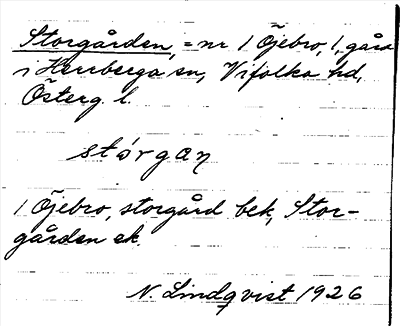 Storgården, = nr 1 Öjebro, 1, gård
i Herrberga sn, Vifolka hd,
Österg. l.
stórgan
1 Öjebro, storgård bek, Stor-
gården ek.
N. Lindqvist 1926